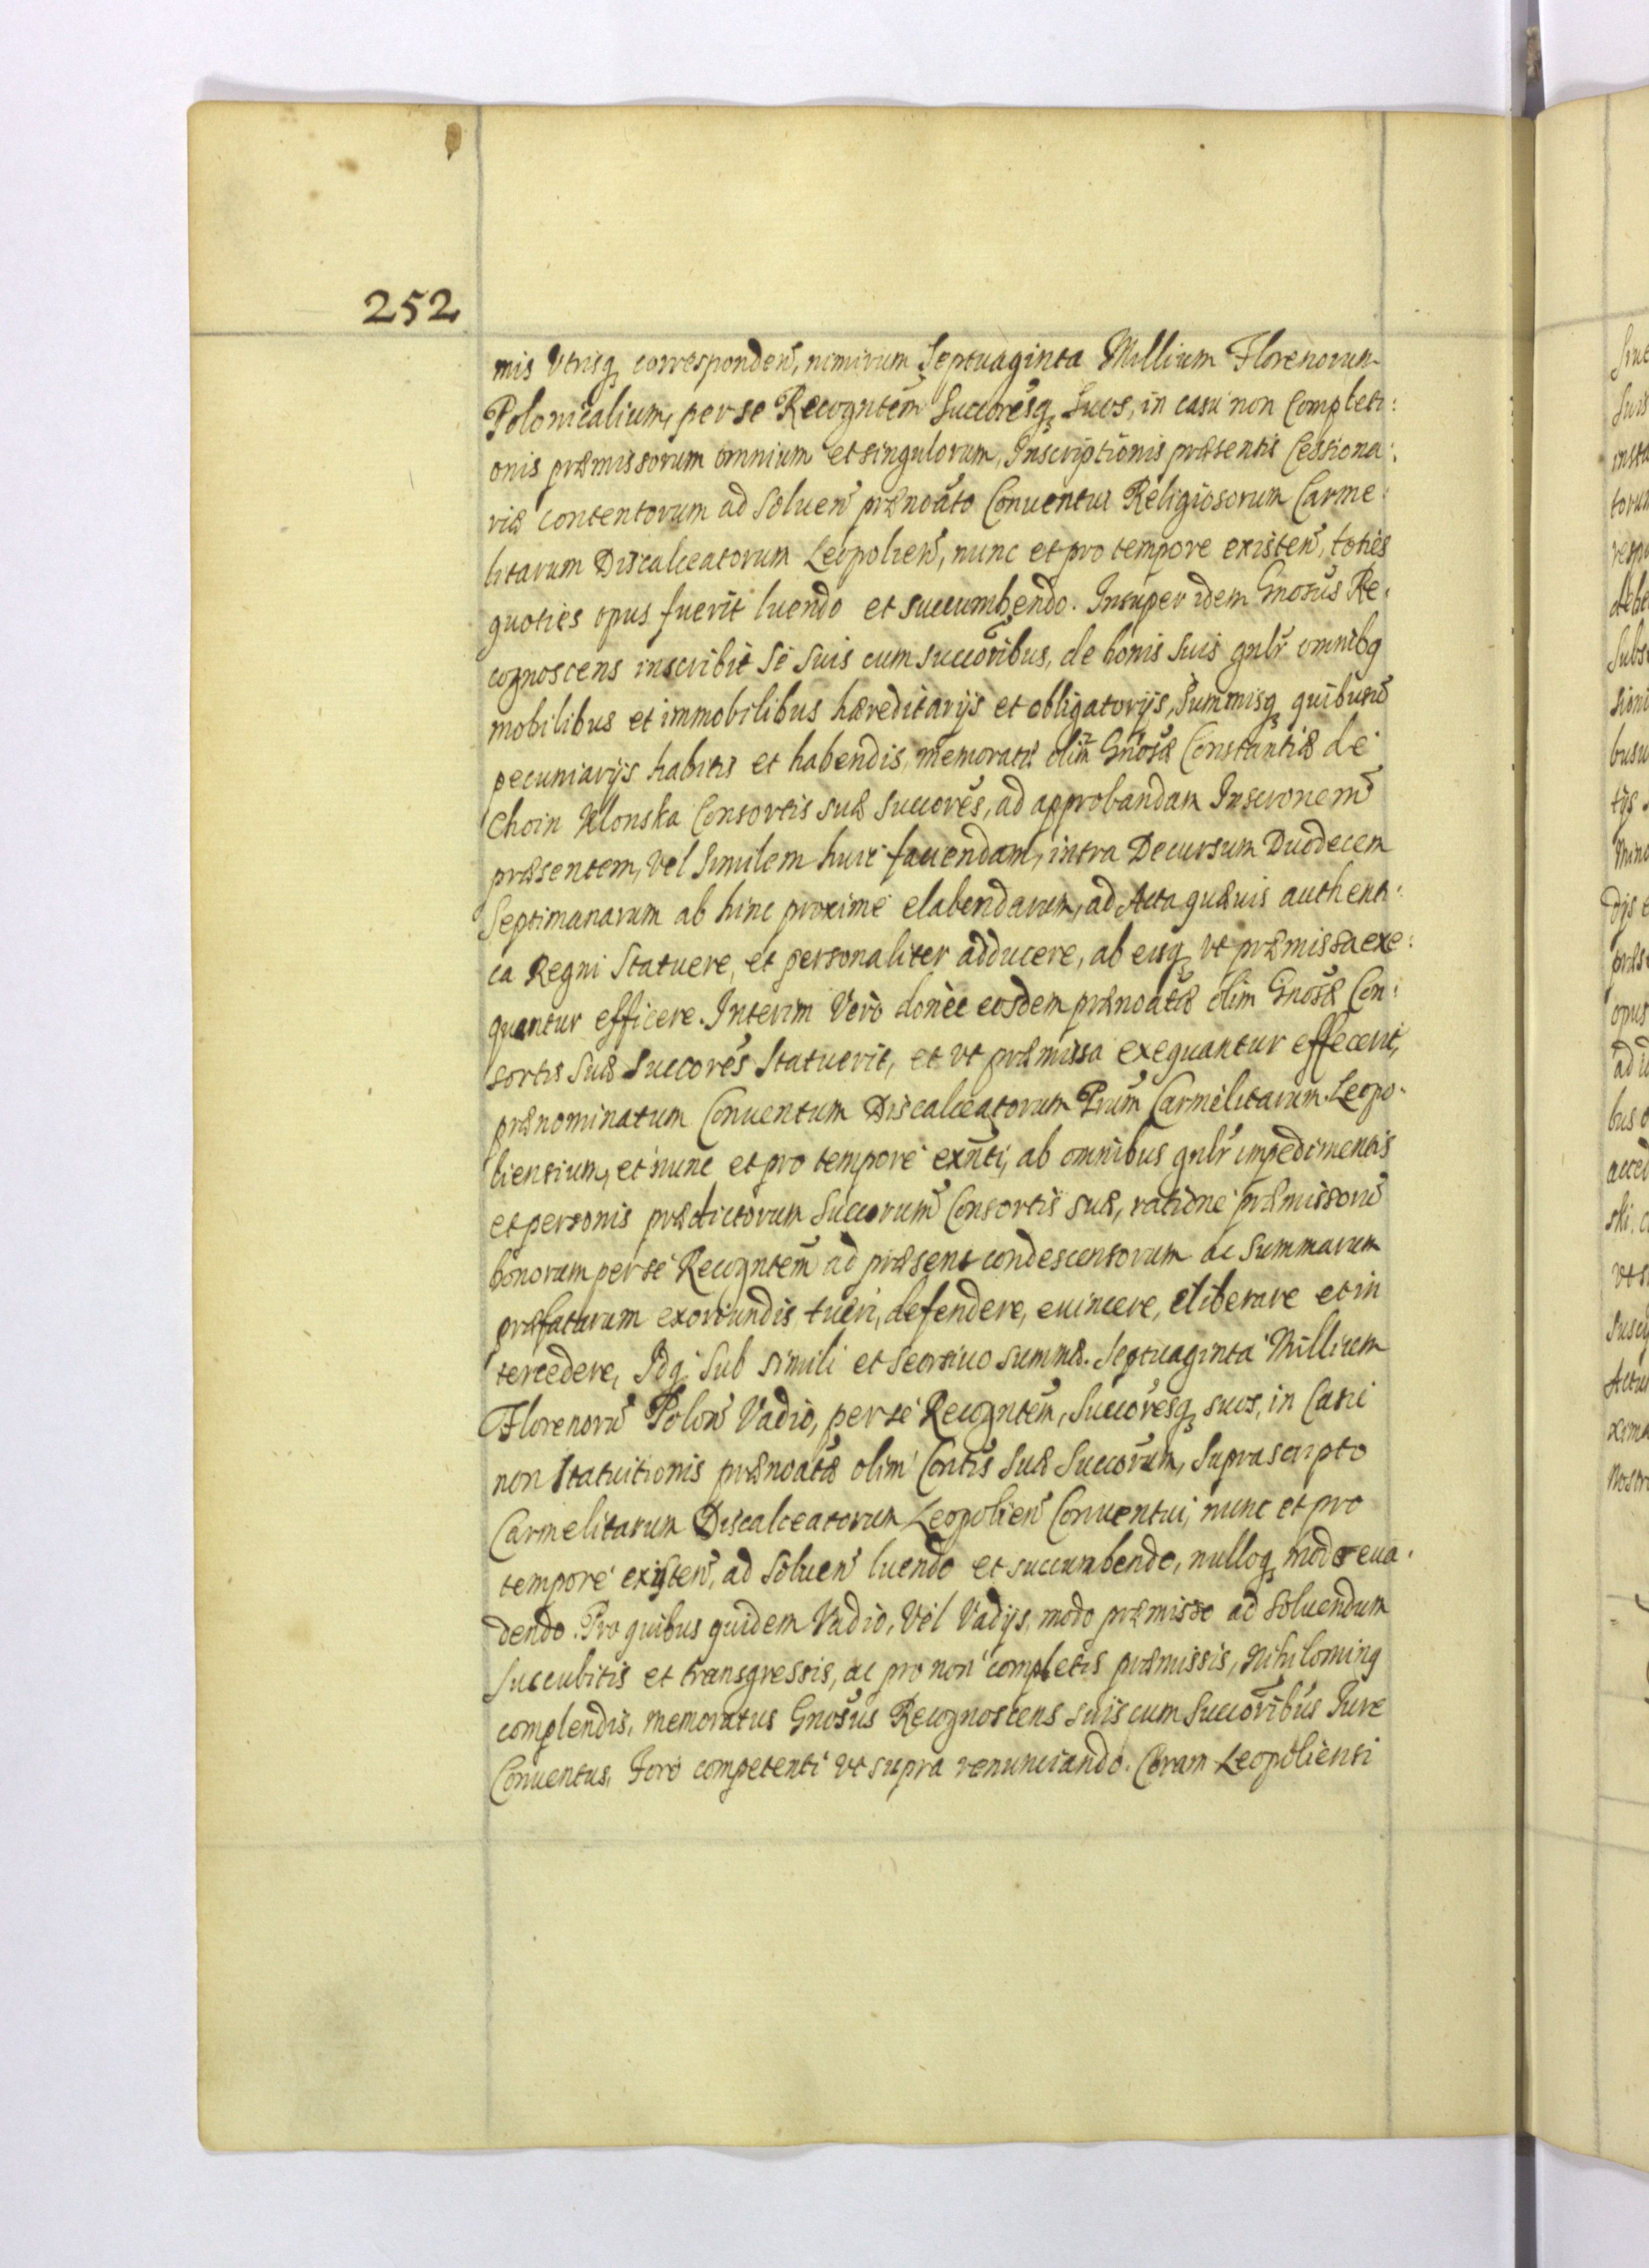 252
mis Utrisq; corresponden̄, nimirum Septuaginta Millium Florenorum
Polonicalium, per se Recogntem̄ Succorēsq; Suos, in casu non Completi:
onis præmissorum omnium et singulorum, Inscriptionis præsentis Cessiona:
riæ contentorum ad Soluen̄ prænoāto Conuentui Religiosorum Carme:
litarum Discalceatorum Leopolien̄, nunc et pro tempore existen̄, toties
quoties opus fuerit luendo et succumbendo. Insuper idem Gnosūs Re:
cognoscens inscribit Se Suis cum succorībus, de bonis Suis gnlr̄ omnibq
mobilibus et immobilibus hæreditarijs et obligatorijs, Summisq; quibusū
pecuniarijs habitis et habendis, memoratæ olim Gnosǣ Constantiæ de
Choin Uklonska Consortis suæ Succorēs, ad approbandam Inscronem̄
præsentem, vel Similem huic fauendam, intra Decursum Duodecem
Septimanarum ab hinc proxime elabendarum, ad Acta quæuis authenti:
ca Regni Statuere, et personaliter adducere, ab eisq; vt præmissa exe:
quantur efficere. Interim Vero donec eosdem prænoatǣ olim Gnosǣ Con:
sortis Suæ Succorēs Statuerit, et vt præmissa exequantur effecerit,
prænominatum Conuentum Discalceatorum Prum̄ Carmelitarum Leopo:
liensium, et nunc et pro tempore exn̄ti, ab omnibus gnlr̄ impedimentis
et personis prædictorum Succorum̄ Consortis suæ, ratione præmissorū
bonorum per se Recogntem̄ ad præsens condescensorum ac Summarum
præfatarum exoriundis tueri, defendere, euincere, eliberare et in
tercedere, Idq; Sub simili et seorsiuo summæ Septuaginta Millium
Florenorū Polon̄ Vadio, per se Recogntem̄, Succorēsq; suos, in Casu
non Statuitionis prænoatǣ olim Contīs Suæ Succorūm, Suprascripto
Carmelitarum Discalceatorum Leopolien̄ Conuentui, nunc et pro
tempore existen̄, ad Soluen̄ luendo et succumbendo, nulloq; modo eua:
dendo. Pro quibus quidem Vadio, Vel Vadijs, modo præmisso ad Soluendum
Succubitis et transgressis, ac pro non completis præmissis, nihilominq
complendis, memoratus Gnosūs Recognoscens suis cum Succorībus Jure
Conuentus, Foro competenti vt supra renunciando. Coram Leopoliensi